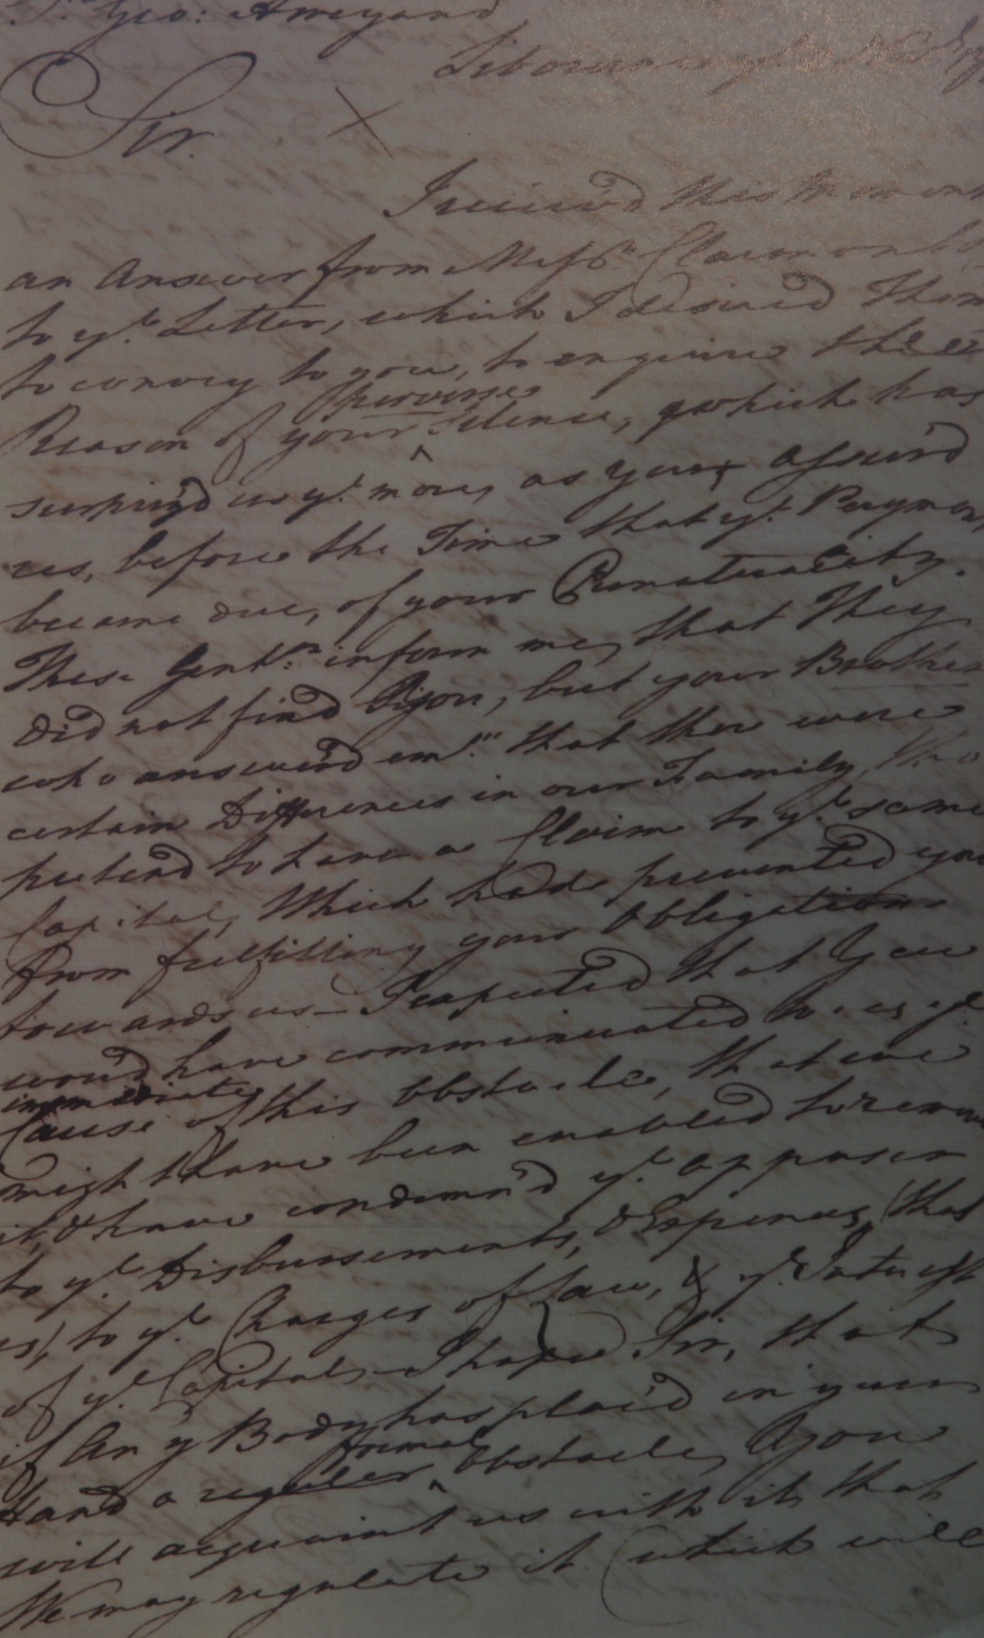 Geo: Amyand
Sir.
I receiv'd this Moment
an Answer from Mess.rs Clermont &
to y.e Letter, which I desired Them
to convey to you, to enquire the
perverse
Reason of your Silence, which has
surpriz'd us y.e more, as you assur'd
us, before the Time that y.e Payment
became due, of your Punctuality.
These Gent.n inform me, that They
did not find you, but your Brother
who answer'd em "that there were
certain Differences in our Family, who
pretend to have a Claim to y.e same
Capital, Which had prevented you
from fulfilling your Obligations
towards us - I expected that You
wou'd have communicated to us y.e
immediate
Cause of this Obstacle, that we
might have been enabled to remove
it, & have condemn'd y.e opposer
to y.e Disbursements, & Expences, (that
is) to y.e Charges of Law, & y.e Interest
of y.e Capital - I hope Sir, that
if Any Body has plac'd in your
formal
Hand a regular Obstacle, you
will acquaint us with it, that
We may regulate it (which will